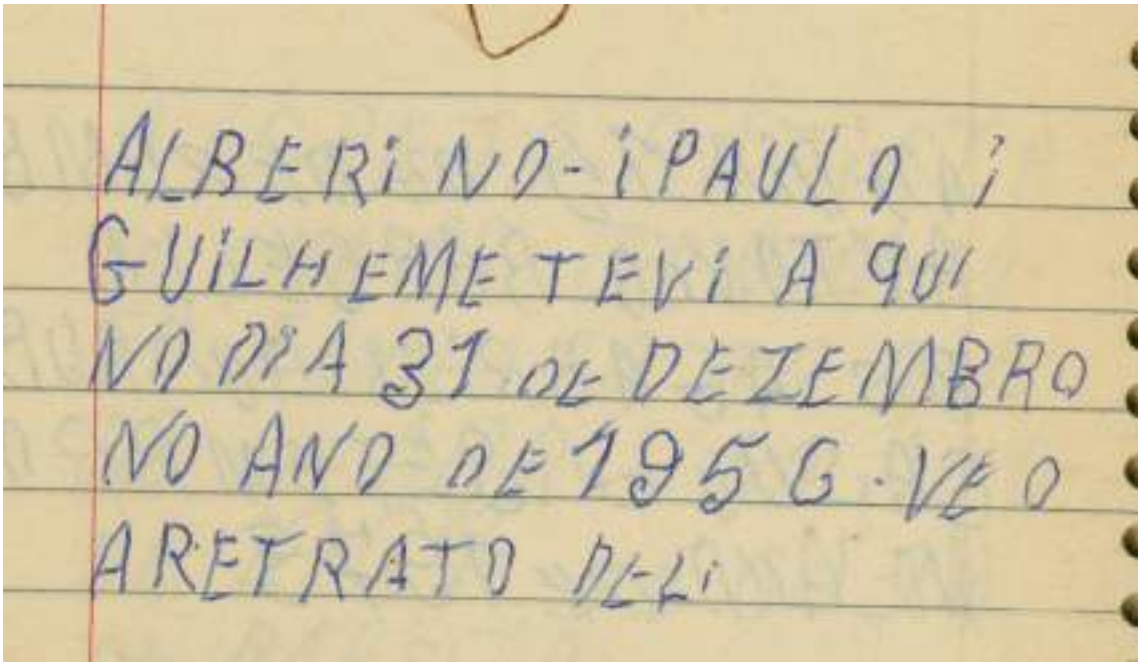 ALBERINO - i PAULO i
GUiLHEME TEVi A QUI
NO DiA 31 DE DEZEMBRO
NO ANO DE 1956. VEO
ARETRATO DELi